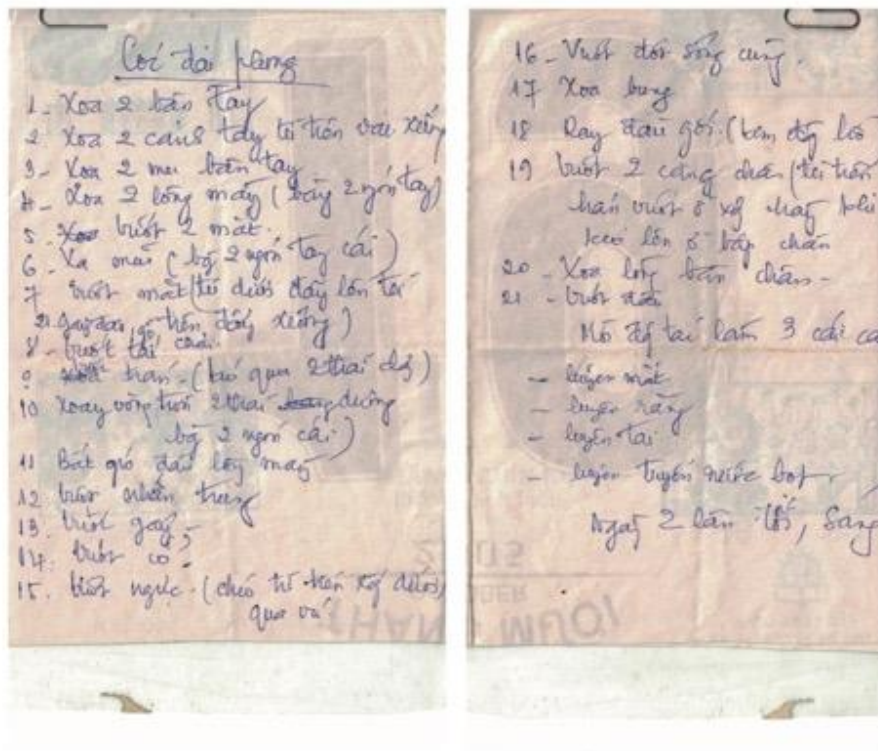 Cốc đại phong
1. Xoa 2 bàn tay
2. Xoa 2 cánh tay từ trên vai xuống
3. Xoa 2 mu bàn tay
4. Xoa 2 lông mày (bằng 2 ngón tay)
5. vuốt 2 mắt.
6. mũi (bằng 2 ngón tay cái)
7 vuốt mặt (từ dưới đây lên tới
trên đẩy xuống)
8. vuốt tai
9. trán. (qua 2 thái d)
10 xoay vòng tròn 2 thái dương
bằng 2 ngón cái)
11 Bắt gió đầu lông mày
12. vuốt nhân trung
13. vuốt gáy.
14. vuốt cổ.
15. vuốt ngực. (chéo từ trên xg dưới)
qua vai
16 - Vuốt đốt sống cùng.
17 Xoa bụng
18 Day đầu gối. (
19 vuốt 2 cẳng chân (từ trên
vuốt ở xg
kéo lên ở bắp chân
20 - Xoa lòng bàn chân -
21 - vuốt
Mỗi làm 3 cái
- luyện mắt
- luyện răng
- luyện tai
- luyện nước bọt.
Ngày 2 lần tối, Sáng